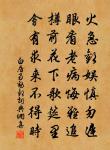 火急歡娛慎勿遲
眼看老病悔難追
樽前花下歌筵裏
會有求來不得時
白居易勸歡